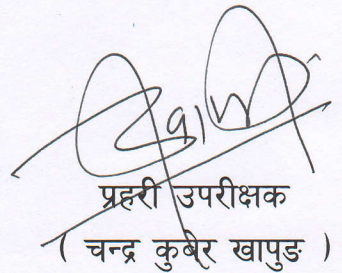 प्रहरी उपरीक्षक
( चन्द्र कुबेर खापुङ )